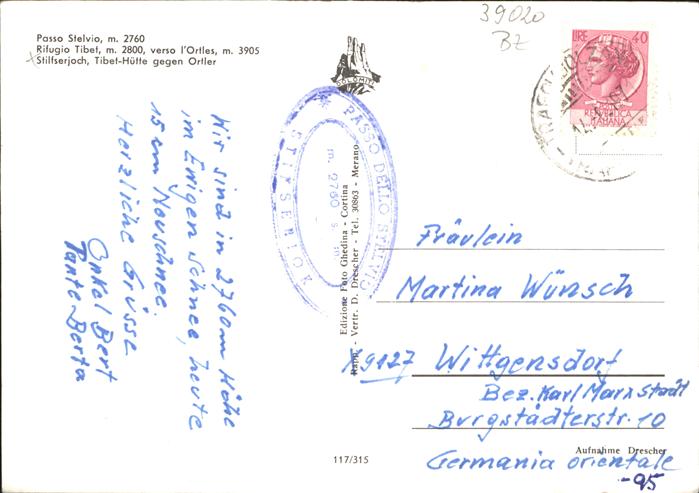 Passo Stelvio, m. 2760
Rifugio Tibet, m. 2800, verso l'Ortles, m. 3905
Stilfserjoch, Tibet-Hütte gegen Ortler
39020
BZ
DOLOMITI
LIRE 40
REPUBBLICA
ITALIANA
PASSO DELLO STELVIO
m. 2760 s. m.
STILFSERJOCH
Edizione Foto Ghedina - Cortina
Rapp. - Vertr. D. Drescher - Tel. 30863 - Merano
Wir sind in 2760m Höhe
im Ewigen Schnee, heute
15 cm Neuschnee.
Herzliche Grüsse
Onkel Bert
Tante Berta
Fräulein
Martina Wünsch
X9127 Wittgensdorf
Bez. Karl Marx Stadt
Burgstädterstr. 10
Germania orientale
Aufnahme Drescher
117/315
-95